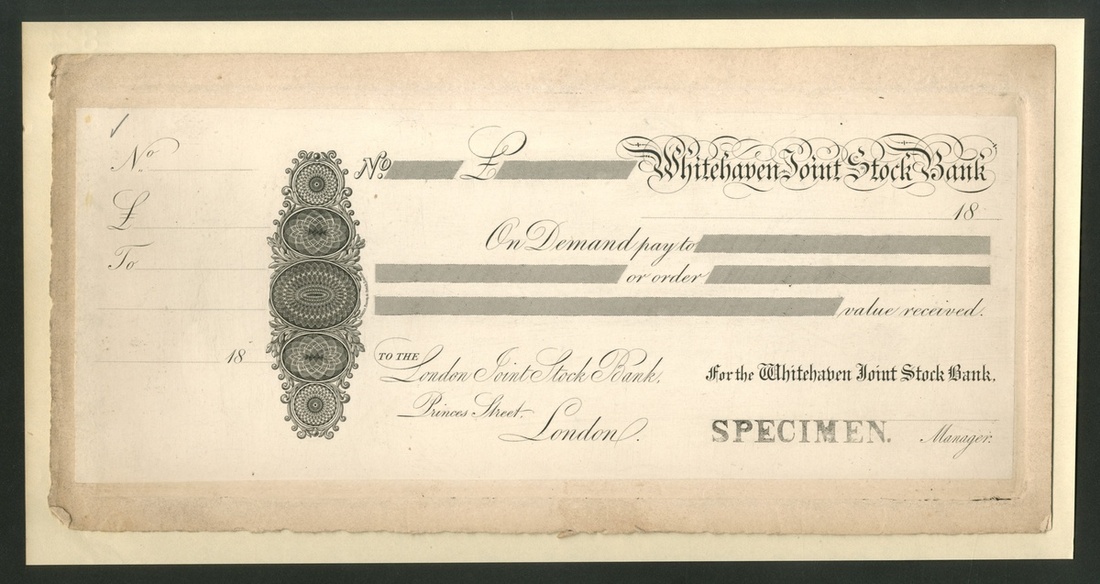 No.
£
To
18
No. £ Whitehaven Joint Stock Bank
18
On Demand pay to
or order
value received.
TO THE London Joint Stock Bank,
Princes Street.
London.
For the Whitehaven Joint Stock Bank.
SPECIMEN. Manager.